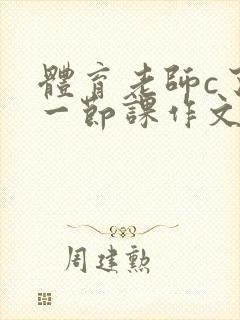 體育老師c
一節課作文
周建勲